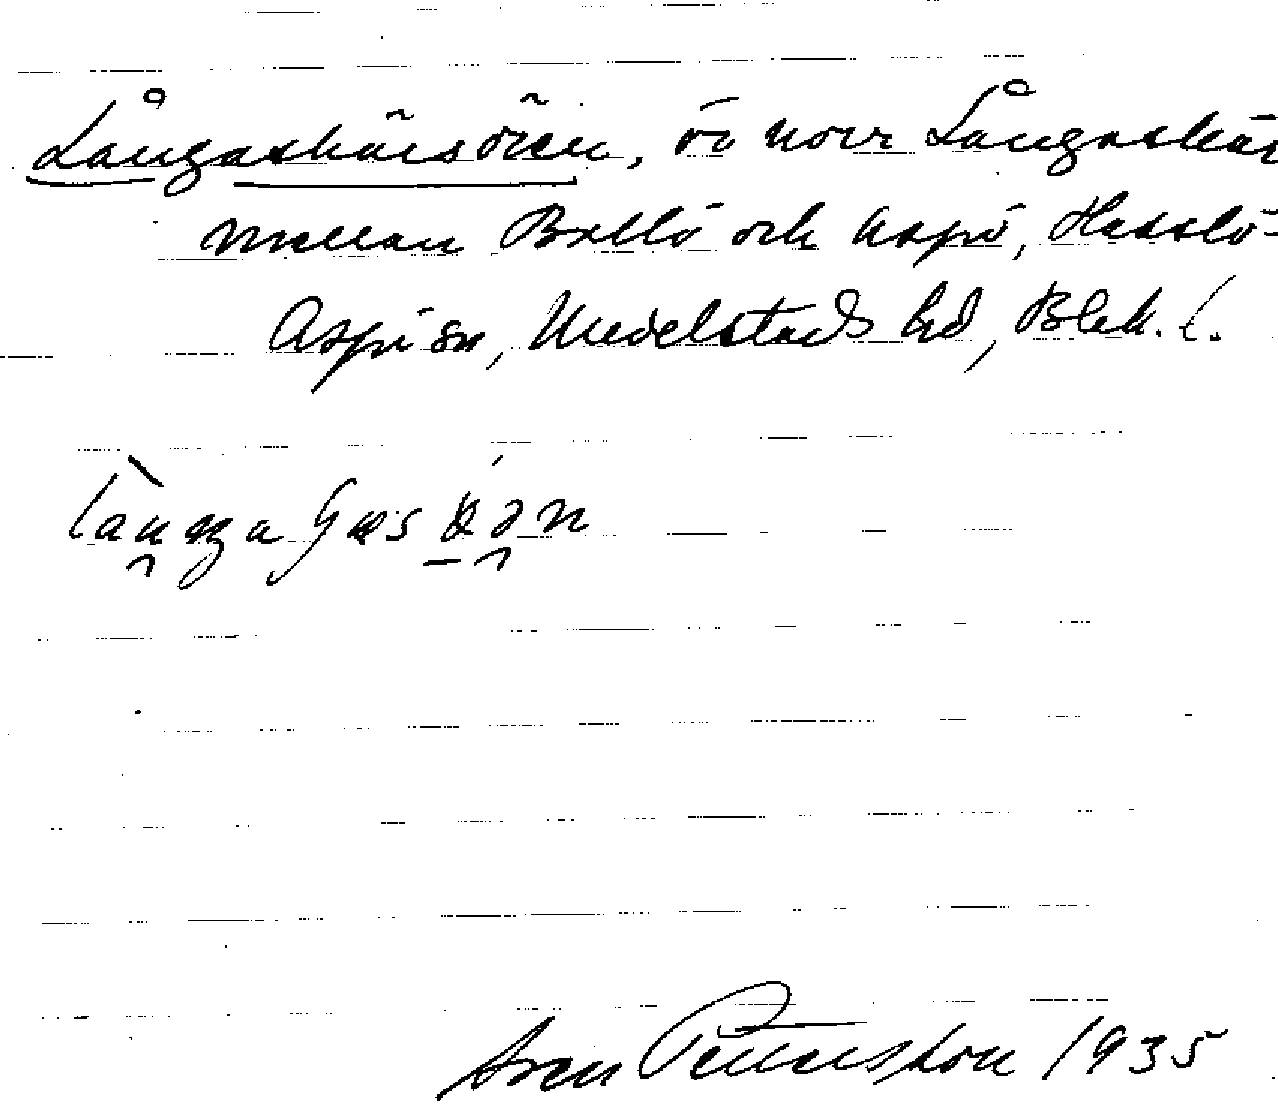 Långaskärsören, ö i norr Långaskär
mellan Bollö och Aspö, Hasslö-
Aspö sn, Medelstads hd, Blek. l.
långa
Sven Pettersson 1935